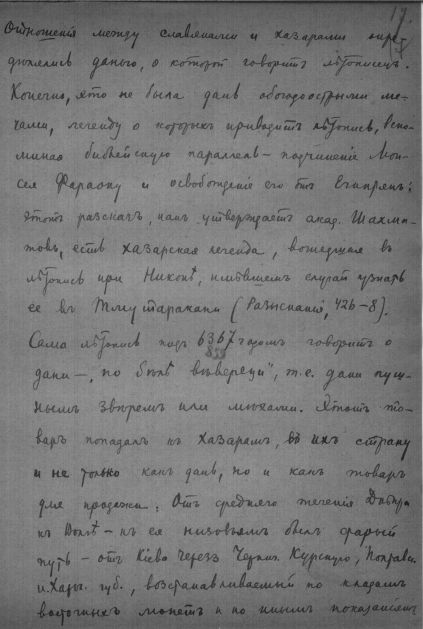 17.
Отношенія между славянами и хазарами опре-
дѣлялись данью, о которой говоритъ лѣтописецъ.
Конечно, это не была дань обоюдоострыми ме-
чами, легенду о которыхъ приводитъ лѣтопись, вспо-
миная библейскую параллель – подчиненіе Мои-
сея Фараону и освобожденіе его отъ Египтянъ:
этотъ разсказъ, какъ утверждаетъ акад. Шахма-
товъ, есть хазарская легенда, вошедшая въ
лѣтопись при Никонѣ, имѣвшемъ случай узнать
ее въ Тмутаракани (Разысканія, 426–8).
Сама лѣтопись подъ 6367 годомъ говоритъ о
859
дани –, по бѣлѣ вѣверици", т.е. дани пуш-
нымъ звѣремъ или мѣхами. Этотъ то-
варъ попадалъ къ Хазарамъ, въ ихъ страну
и не только какъ дань, но и какъ товаръ
для продажи. Отъ средняго теченія Днѣпра
къ Волгѣ – къ ея низовьямъ былъ старый
путь – отъ Кіева черезъ Черниг. Курскую, Полтавск.
и Харьк. губ., возстанавливаемый по кладамъ
восточныхъ монетъ и по инымъ показаніямъ